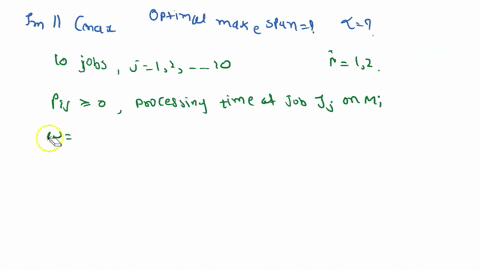 Fm || Cmax Optimal make span=? τ=?
10 jobs, j=1,2,---10 i=1,2.
Pij ≥ 0, processing time at Job Jj on Mi
w=